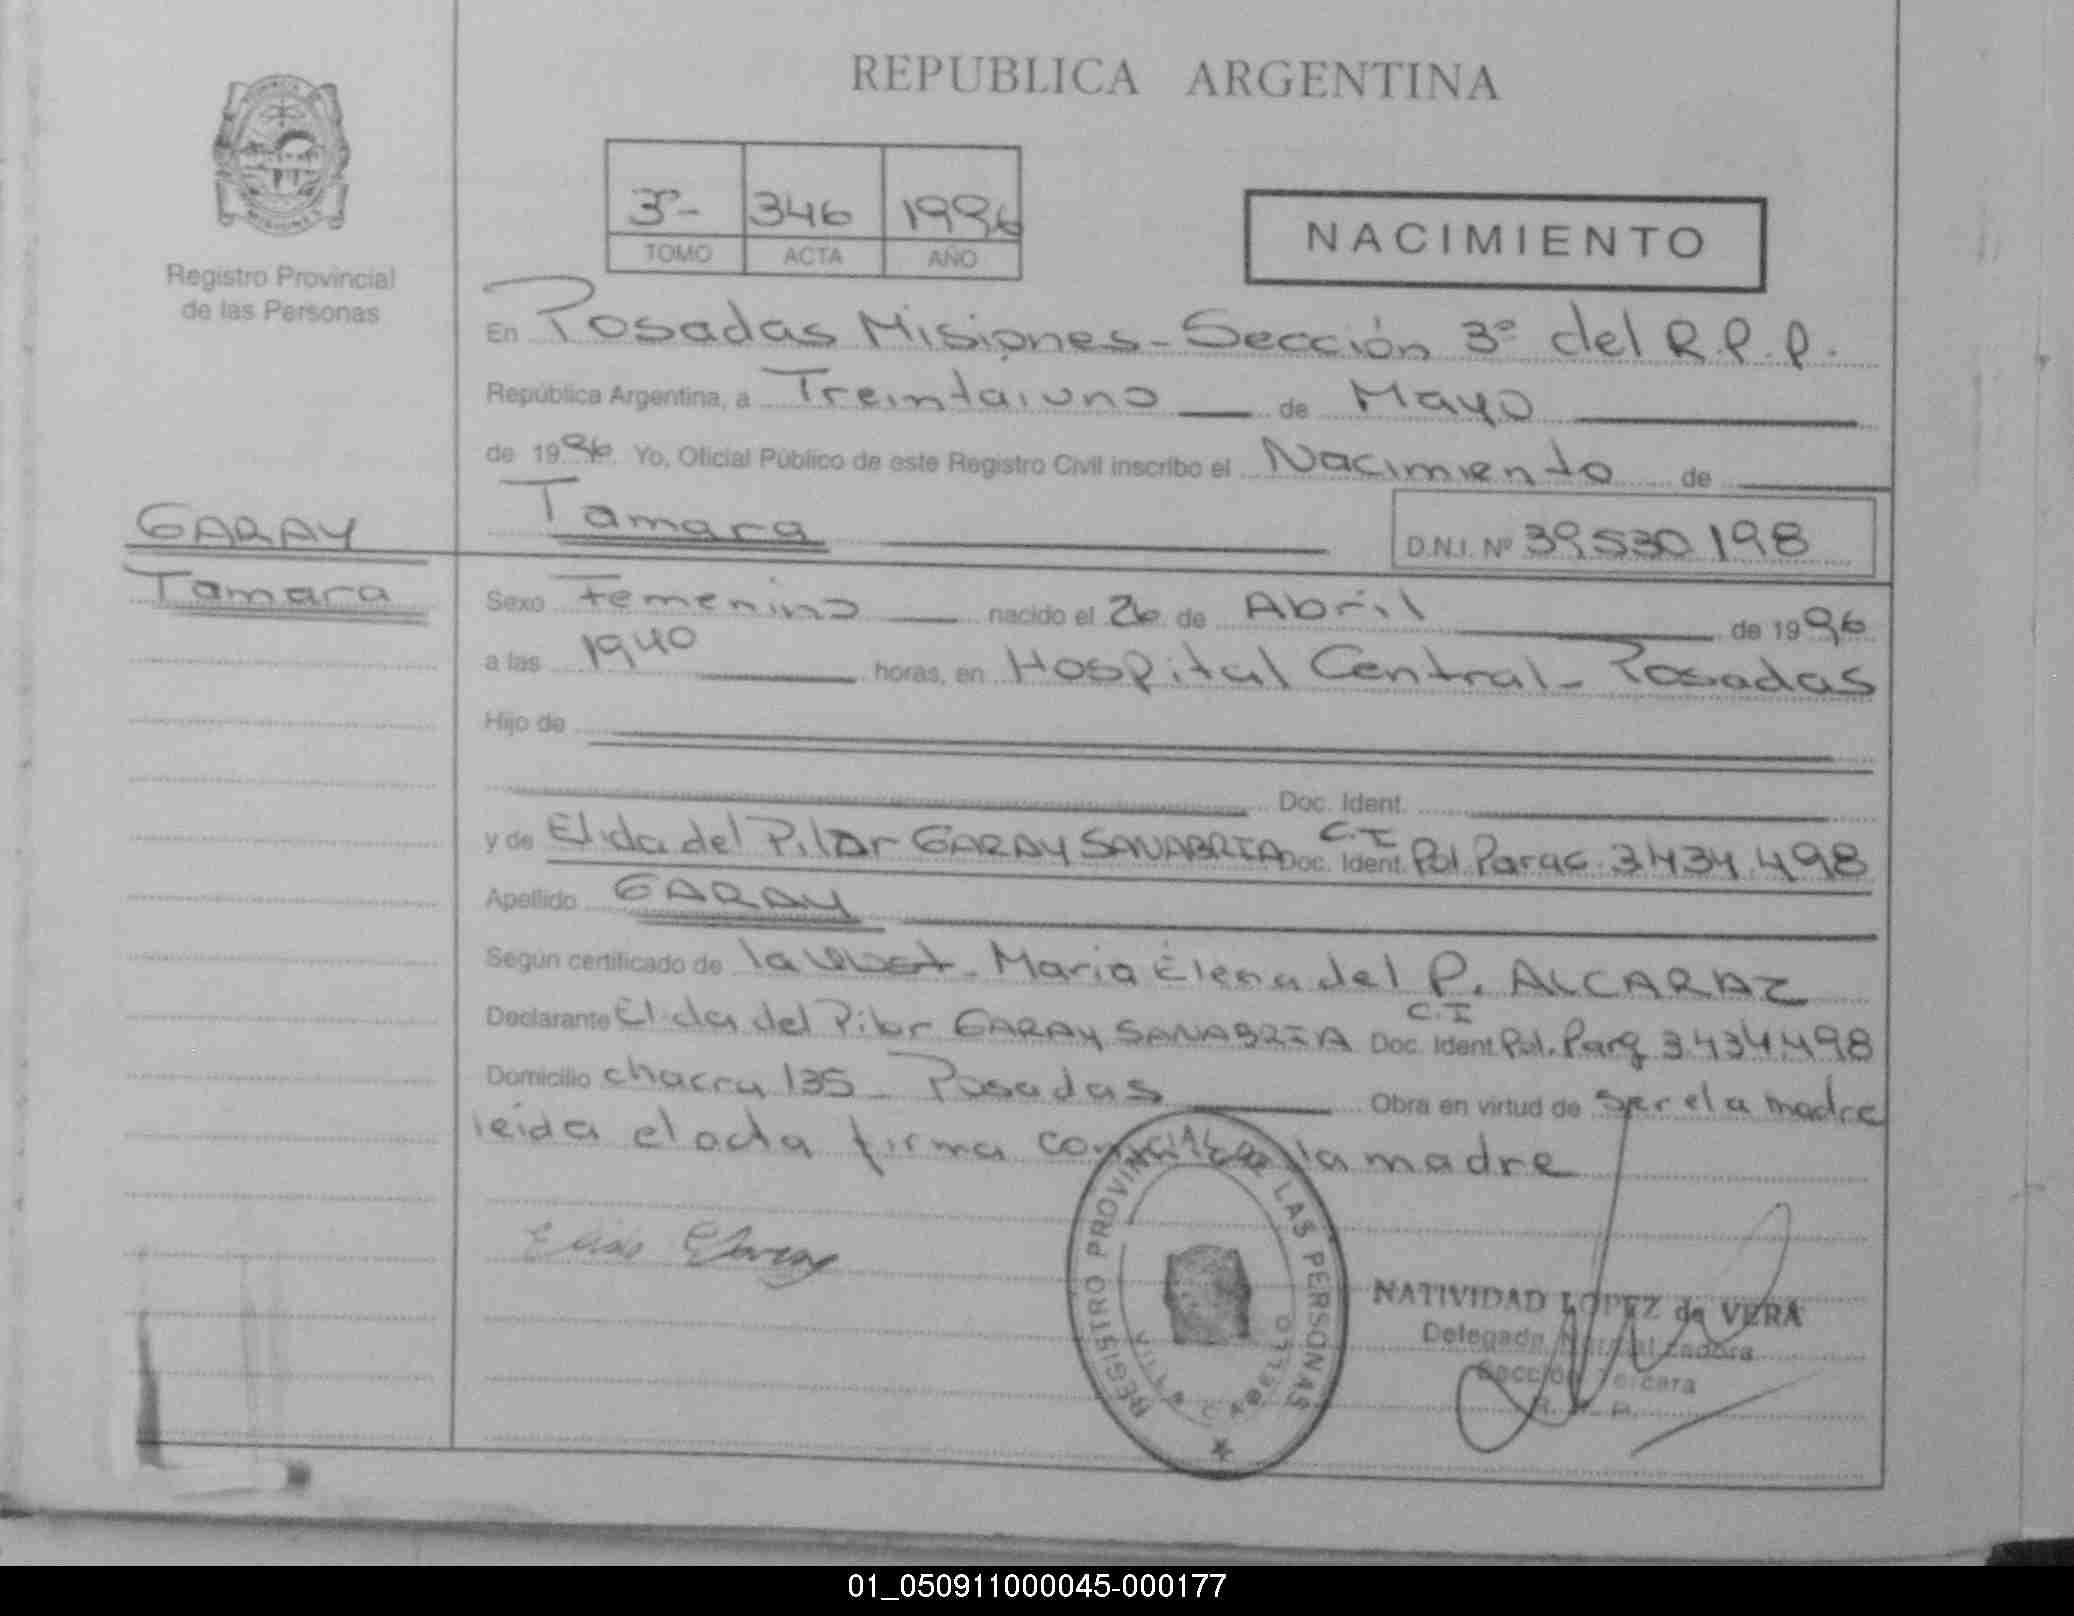 REPUBLICA ARGENTINA
3º- 346 1996
TOMO ACTA AÑO
NACIMIENTO
Registro Provincial
de las Personas
En Posadas Misiones - Sección 3º del R.P.P.
República Argentina, a Treintaiuno de Mayo
de 1996 Yo, Oficial Público de este Registro Civil inscribo el Nacimiento de
GARAY
Tamara
Tamara D.N.I. Nº 39530198
Sexo Femenino nacido el 26 de Abril de 1996
a las 1940 horas, en Hospital Central - Posadas
Hijo de
Doc. Ident.
y de Elida del Pilar GARAY SANABRIA Doc. Ident. C.I Pol. Parag. 3.434.498
Apellido GARAY
Según certificado de la Obst. Maria Elena del P. ALCARAZ
Declarante Elida del Pilar GARAY SANABRIA Doc. Ident. C.I Pol. Parg 3.434.498
Domicilio chacra 135 - Posadas Obra en virtud de ser el a madre
leida el acta firma la madre
REGISTRO PROVINCIAL DE LAS PERSONAS
VILLA CABELLO
NATIVIDAD LOPEZ de VERA
Delegada
Sección Tercera
R. P. P.
01_050911000045-000177